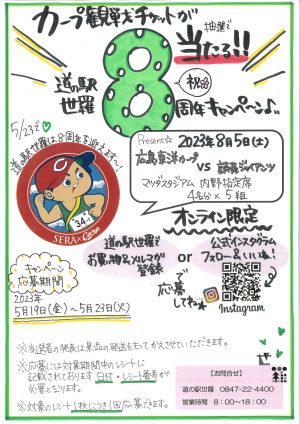 カープ観戦チケットが
抽選で
当たる!!
道の駅
世羅
8
祝
周年キャンペーン♪
5/23で
道の駅世羅は8周年を迎えます〜!
Present☆ 2023年8月5日(土)
広島東洋カープ VS 読売ジャイアンツ
マツダスタジアム 内野指定席
4名分×5組
34-1
SERA×Carp
オンライン限定
キャンペーン
応募期間
2023年
5月19日(金)〜5月23日(火)
道の駅世羅で
お買い物&メルマガ
登録
or
公式インスタグラム
フォロー&いいね!
で応募してね
Instagram
※当選者の発表は景品の発送をもってかえさせていただきます。
※応募には対象期間中のレシートに
記載されております日付・レシート番号が
必要となります。
※対象のレシート1枚につき1回応募できます。
せ
【お問合せ】
道の駅世羅 0847-22-4400
営業時間 8:00〜18:00